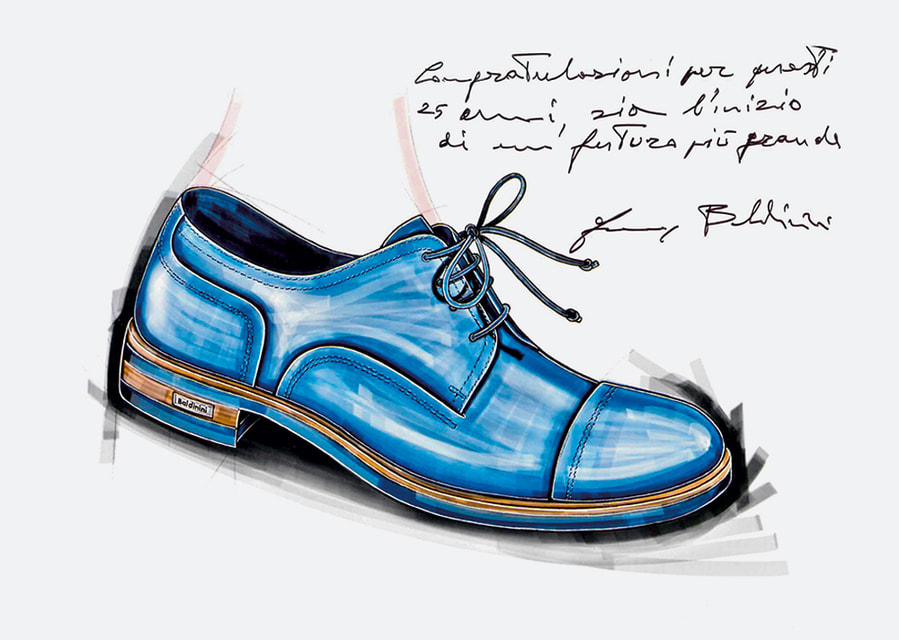 Congratulazioni per questi
25 anni, sia l'inizio
di un' futuro più grande
Baldinini
Baldinini